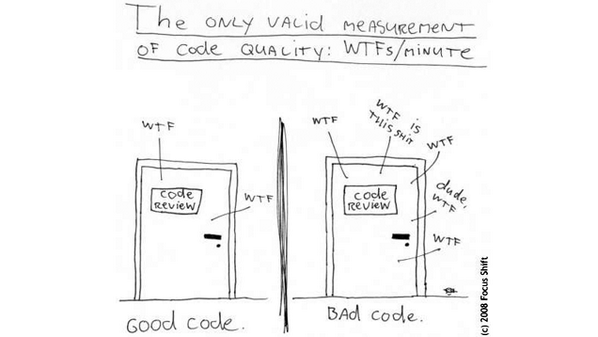 The only valid measurement
of code quality: WTFs/minute
WTF
code
review
WTF
Good code.
WTF
WTF is
this shit
WTF
code
review
dude,
WTF
WTF
BAd code.
(c) 2008 Focus Shift